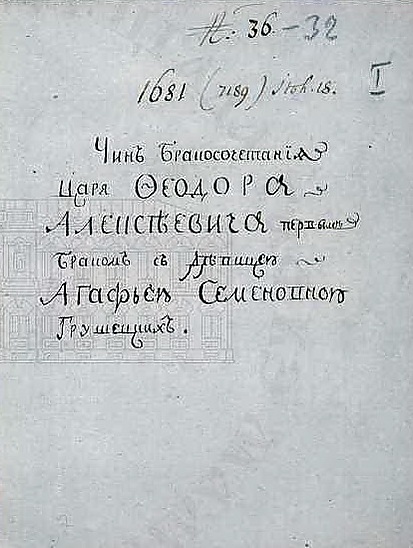 №. 36. – 32
1681 (7189) Iюл. 18. I
Чинъ Бракосочетанїѧ
Царя ѲЕОДОРА
АЛЕѮІѢЕВИЧА первымъ
бракомъ съ дѣвицею
АГАФЬЕЮ СЕМЕНОВНОЮ
Грушецкихъ.